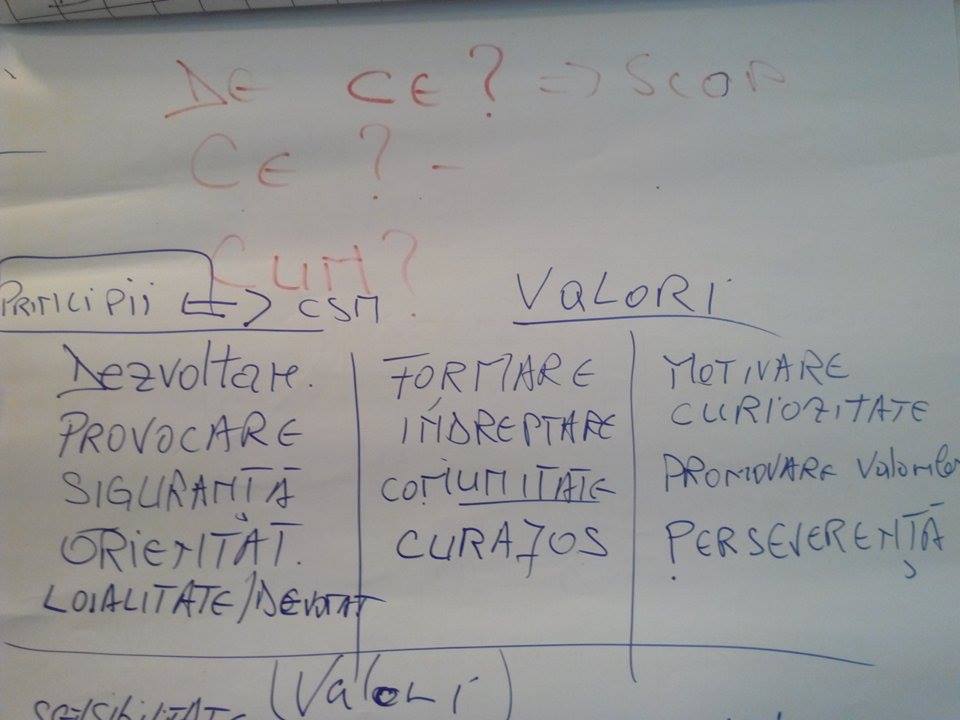 DE CE? => SCOP
CE? -
CUM?
PRINCIPII <=> CSM
VALORI
DEZVOLTARE.
PROVOCARE
SIGURANȚĂ
ORIENTĂT.
LOIALITATE/DEVOTAT
FORMARE
ÎNDREPTARE
COMUNITATE
CURAJOS
MOTIVARE
CURIOZITATE
PROMOVARE Valorilor
PERSEVERENȚĂ
(Valori)
SENSIBILITATE